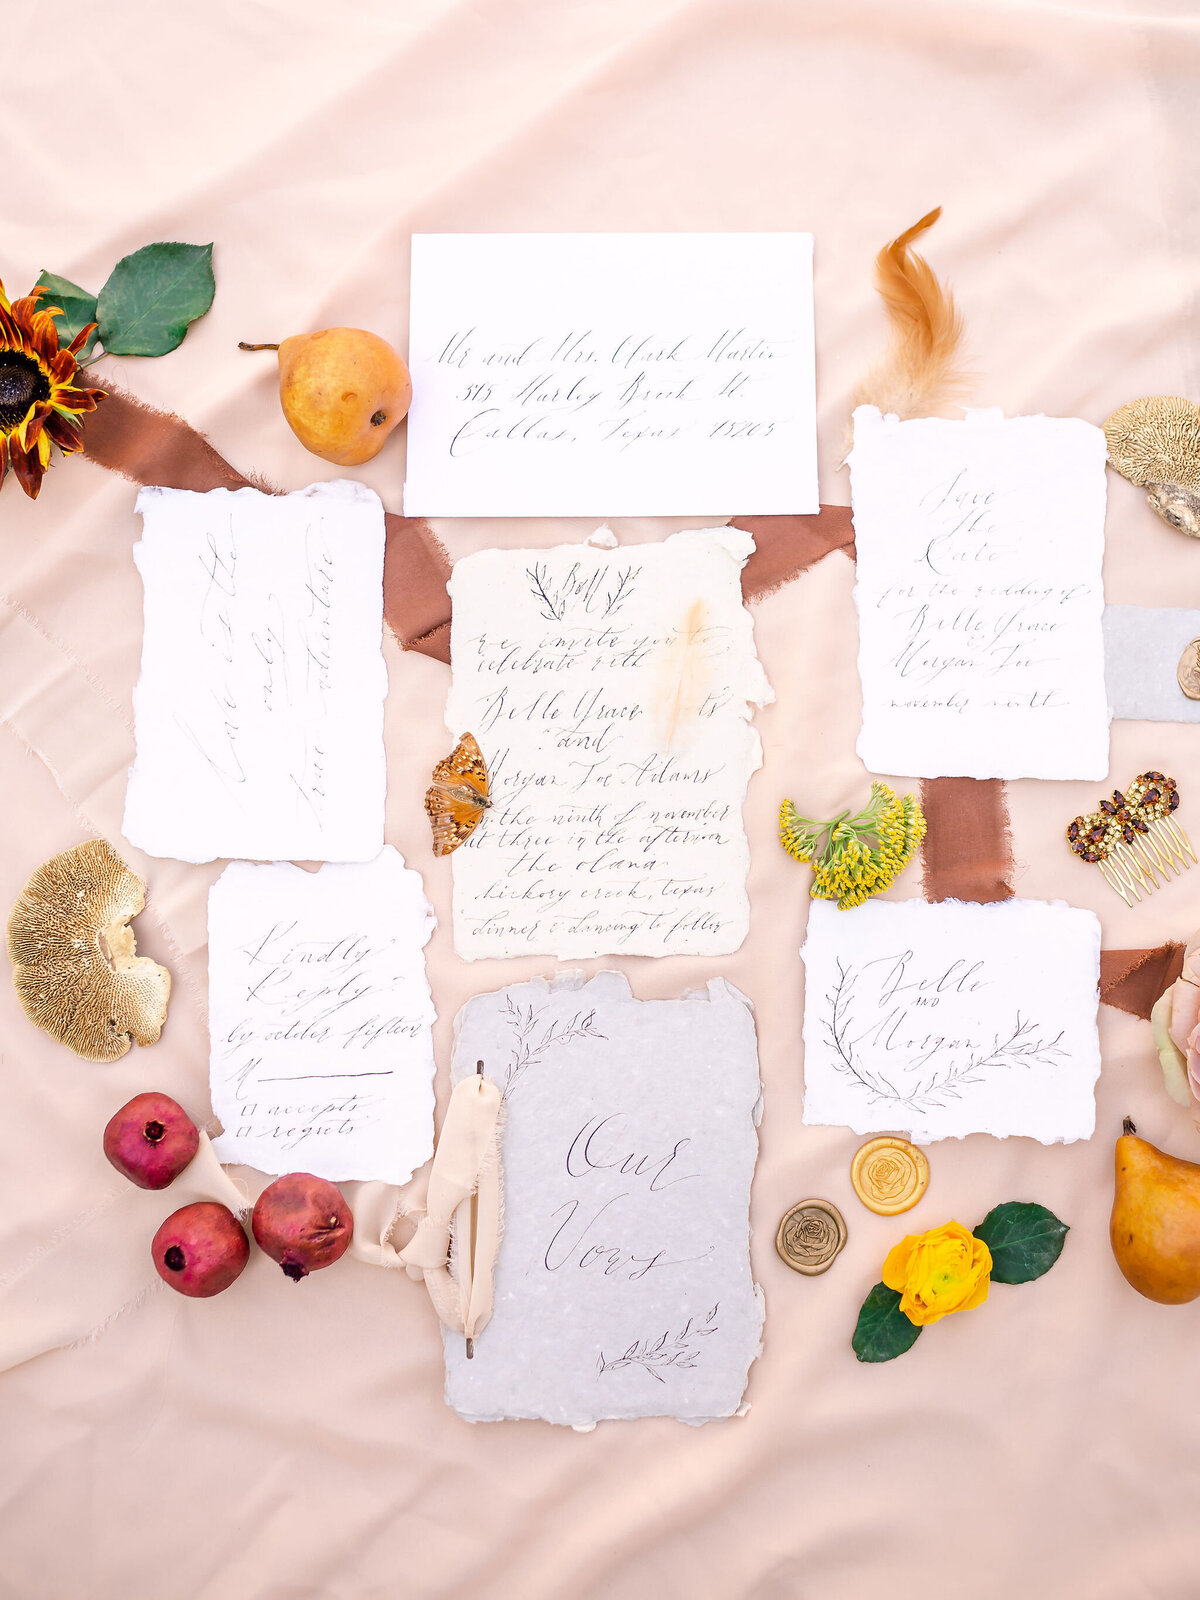 Mr and Mrs. Clark Martin
515 Harley Brook St.
Dallas, Texas 75205
Love is the
only
true adventure
B&M
we invite you to
celebrate with
Belle Grace
and
Morgan Joe Adams
on the ninth of november
at three in the afternoon
the olana
hickory creek, texas
dinner & dancing to follow
Save
the
Date
for the wedding of
Belle Grace
&
Morgan Joe
november ninth
Kindly
Reply
by october fifteen
M
accepts
regrets
Belle
AND
Morgan
Our
Vows